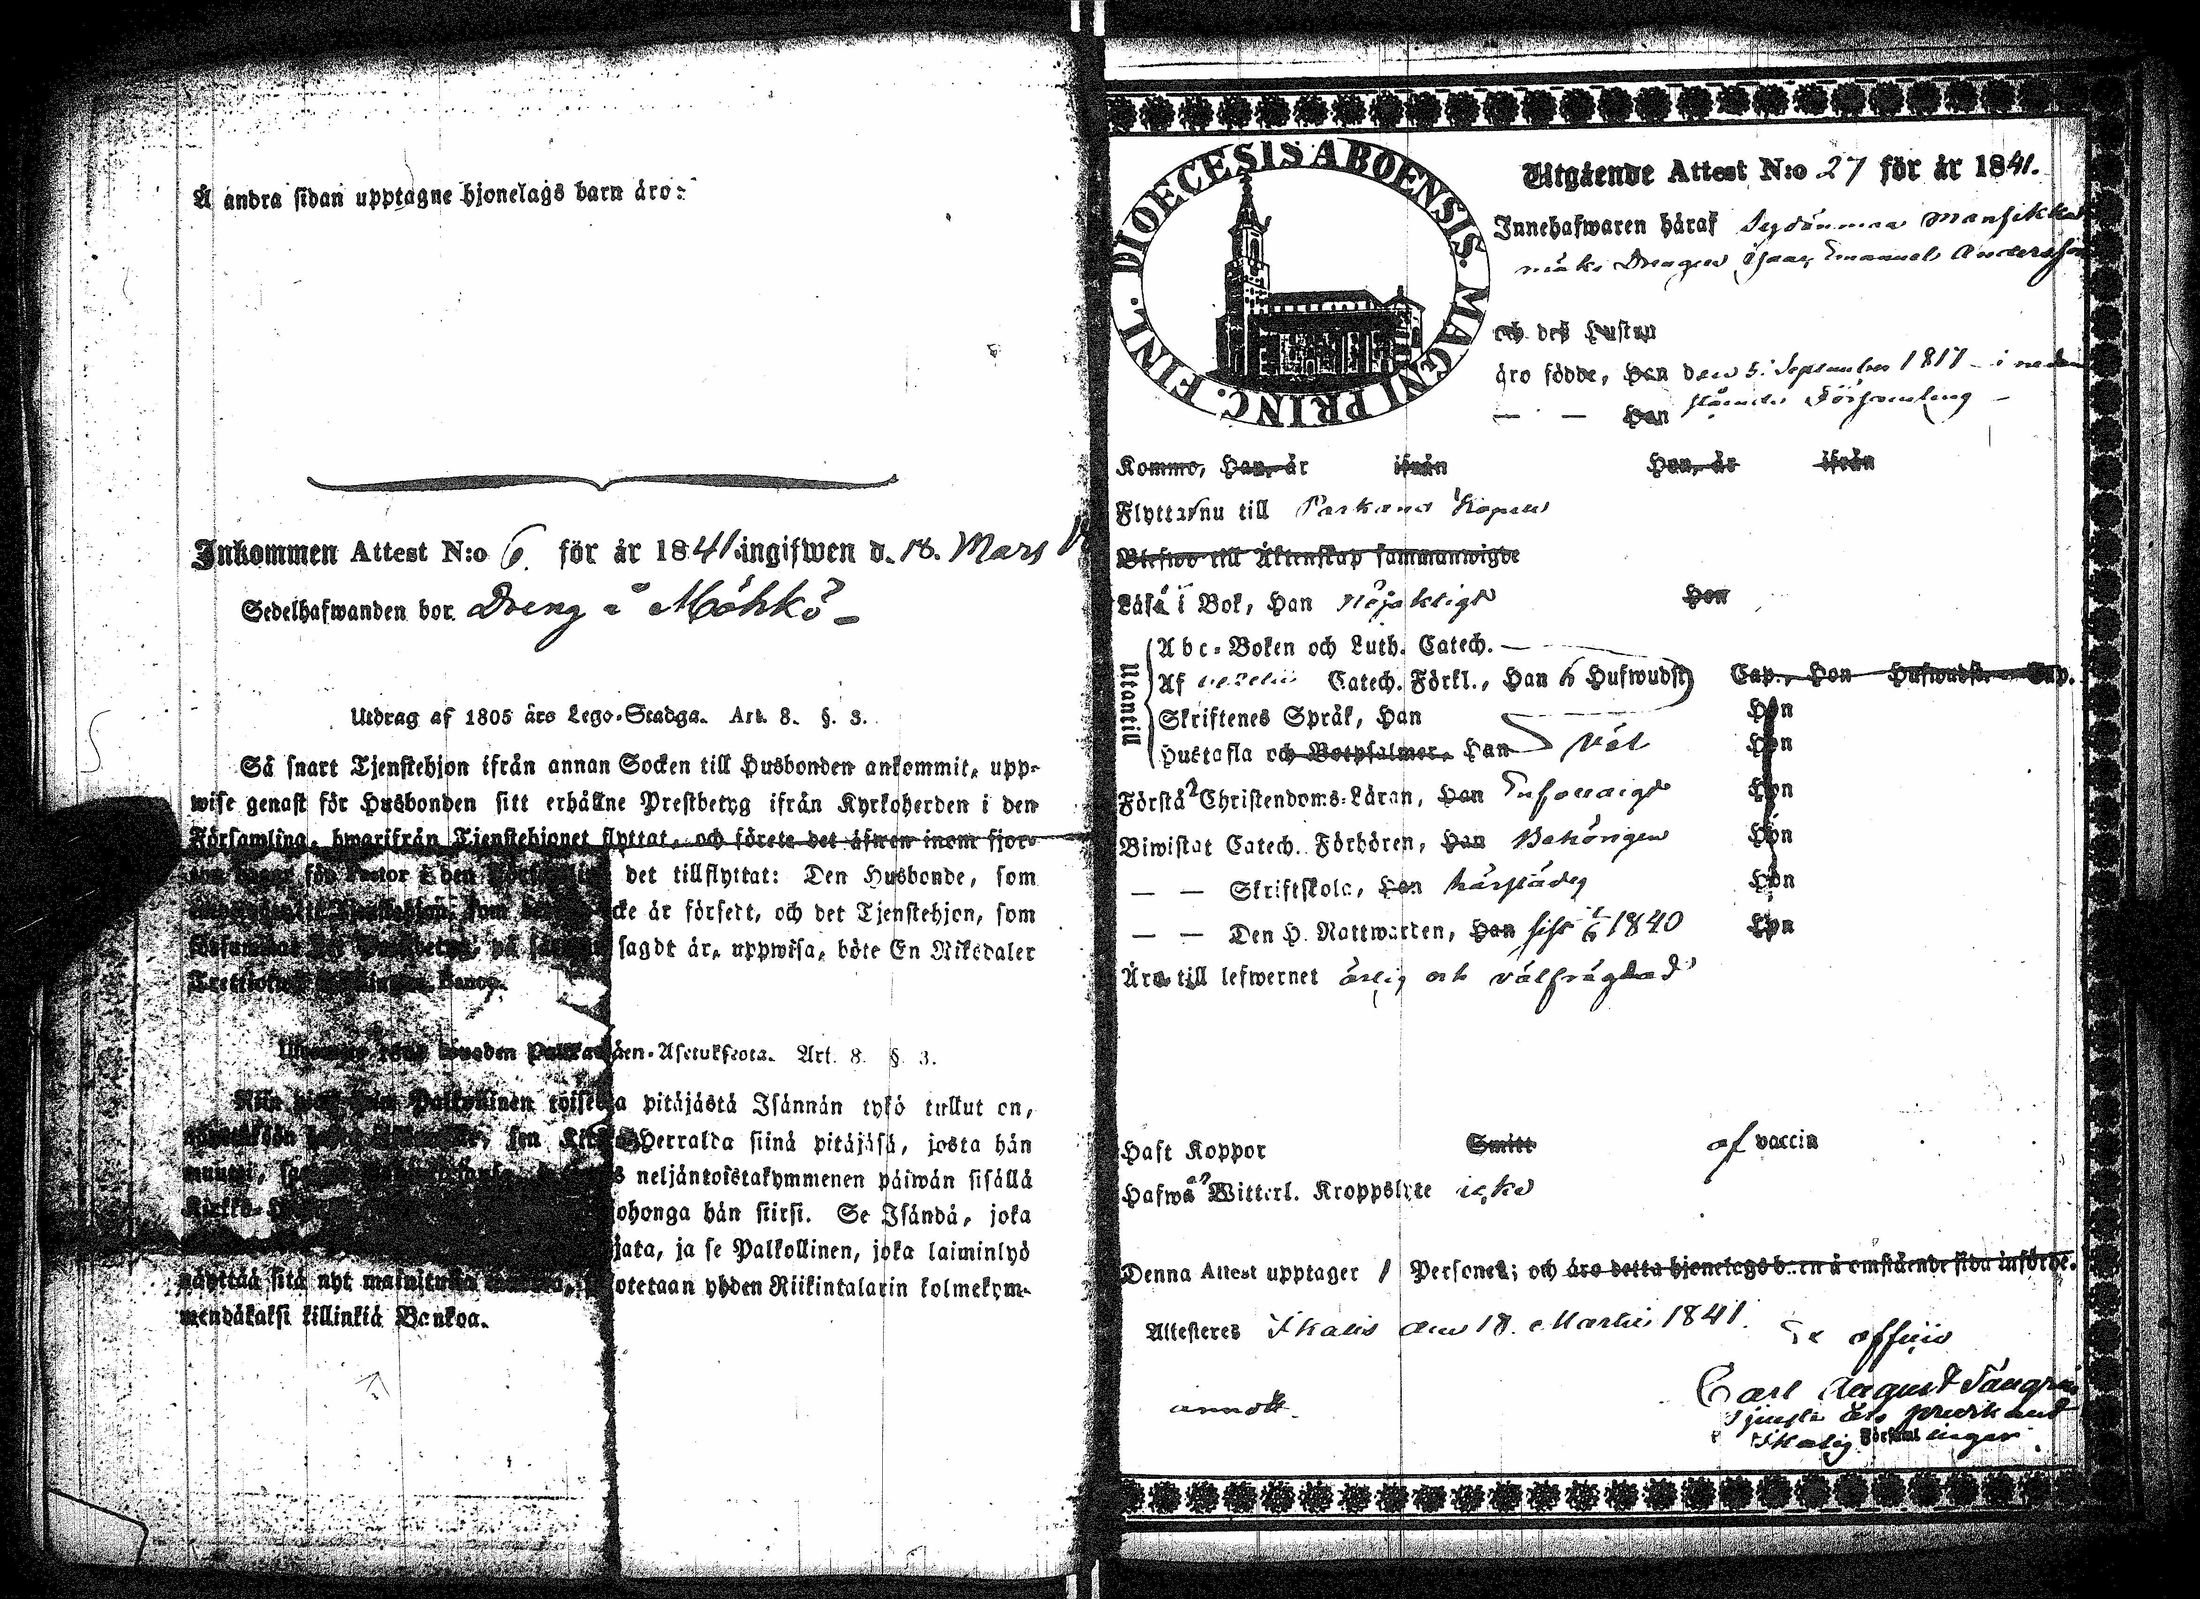 Å andra sidan upptagne hjonelags barn äro:
Inkommen Attest N:o 6 för år 1841 ingifwen d. 18. Mars
Sedelhafwanden bor Dreng i Möhkö
Utdrag af 1805 års Lego-Stadga. Art. 8. §. 3.
Så snart Tjenstehjon ifrån annan Socken till Husbonden ankommit, upp-
wise genast för Husbonden sitt erhållne Prestbetyg ifrån Kyrkoherden i den
Församling, hwarifrån Tjenstehjonet flyttat, och förete det äfwen inom fjor-
för Pastor i den det tillflyttat: Den Husbonde, som
Tjenstehjon, som icke är försedt, och det Tjenstehjon, som
på sagdt är, uppwisa, böte En Riksdaler
Banco.
wuoden Palkawäen-Asetuksesta. Art. 8. §. 3.
Palkollinen toisesta pitäjästä Isännän tykö tullut on,
sen Kirkko-Herralta siinä pitäjäsä, josta hän
neljäntoistakymmenen päiwän sisällä
johonga hän siirsi. Se Isändä, joka
ja se Palkollinen, joka laiminlyö
näyttää sitä nyt mainittua otetaan yhden Riikintalarin kolmekym-
mendäkaksi killinkiä Bankoa.
DIOECESIS ABOENSIS. MAGNI PRINC. FINL.
Utgående Attest N:o 27 för år 1841.
Innehafwaren häraf Sydänmaa Mansikka
mäki Drengen Isaac Emanuel Andersson
och des Hustru
äro födde, Han den 5. September 1817 i nedan
— — Hon stående Församling
Kommo, Han, år ifrån Hon, år ifrån
Flyttar nu till Parkano Kapell
Blefwo till Äktenskap sammanwigde
Läsa i Bok, Han Nöjaktigt Hon
Utantill
Abc-Boken och Luth. Catech.
Af Catech. Förkl., Han 6 Hufwudst. Cap., Hon Hufwudst. Cap.
Skriftenes Språk, Han Hon
Hustafla och Botpsalmer, Han Väl Hon
Förstå Christendoms-Läran, Han Enfaldigt Hon
Biwistat Catech. Förhören, Han Behörigen Hon
— — Skriftskola, Han härstädes Hon
— — Den H. Nattwarden, Han sist 1840 Hon
Äro till lefwernet ärlig och välfrägdad
Haft Koppor Smitt af vaccin
Hafwa Witterl. Kroppslyte icke
Denna Attest upptager 1 Personer; och äro detta hjonelags barn å omstående sida införde.
Attesteras Ikalis den 18. Martii 1841. Ex officio
Carl August
annot. Tjenste
Ikalis Församlingar